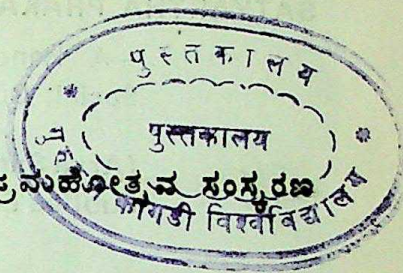 पुस्तकालय
पुस्तकालय
ಮಹೋತ್ಸವ ಸಂಸ್ಮರಣ
कांगडी विश्वविद्यालय